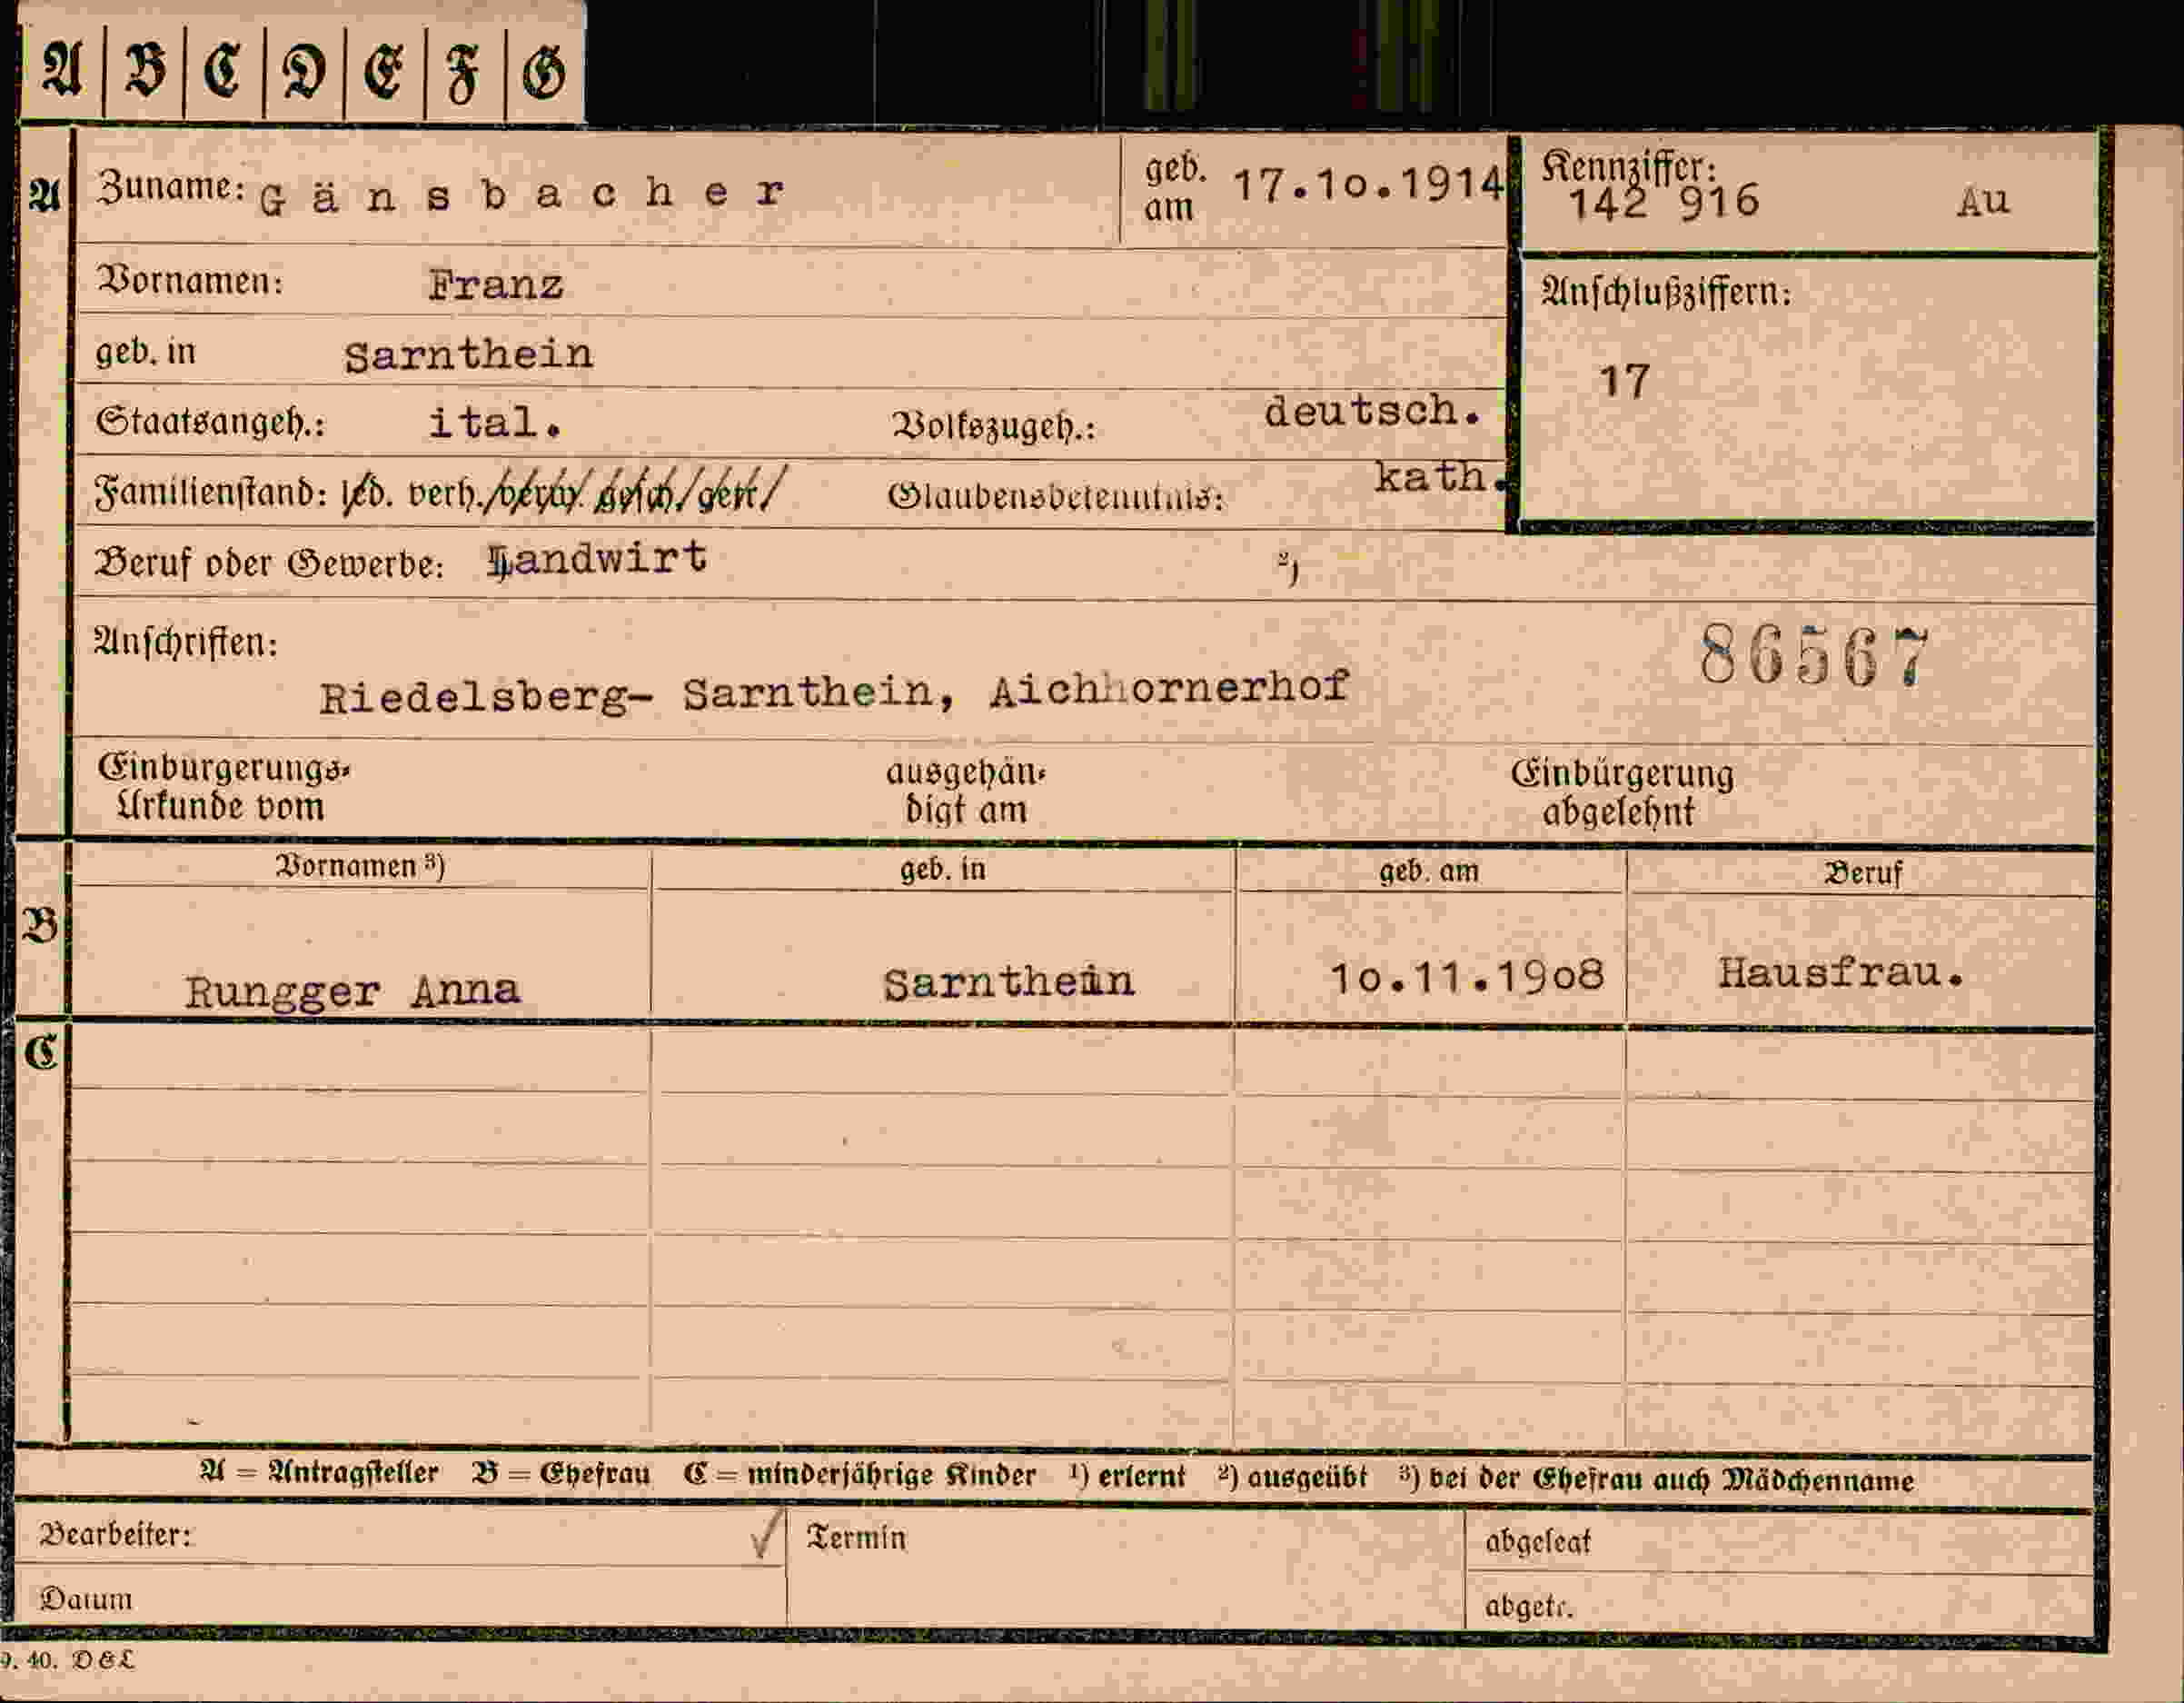 A B C D E F G
A Zuname: Gänsbacher geb. am 17.10.1914 Kennziffer: 142 916 Au
Vornamen: Franz Anschlußziffern:
geb. in Sarnthein 17
Staatsangeh.: ital. Volkszugeh.: deutsch.
Familienstand: led. verh. verw. gesch. getr. Glaubensbekenntnis: kath.
Beruf oder Gewerbe: Landwirt ²)
Anschriften: 86567
Riedelsberg- Sarnthein, Aichhornerhof
Einbürgerungs- ausgehän- Einbürgerung
Urkunde vom digt am abgelehnt
Vornamen ³) geb. in geb. am Beruf
B
Rungger Anna Sarnthein 10.11.1908 Hausfrau.
C
A = Antragsteller B = Ehefrau C = minderjährige Kinder ¹) erlernt ²) ausgeübt ³) bei der Ehefrau auch Mädchenname
Bearbeiter: ✓ Termin abgelegt
Datum abgetr.
9. 40. D&L